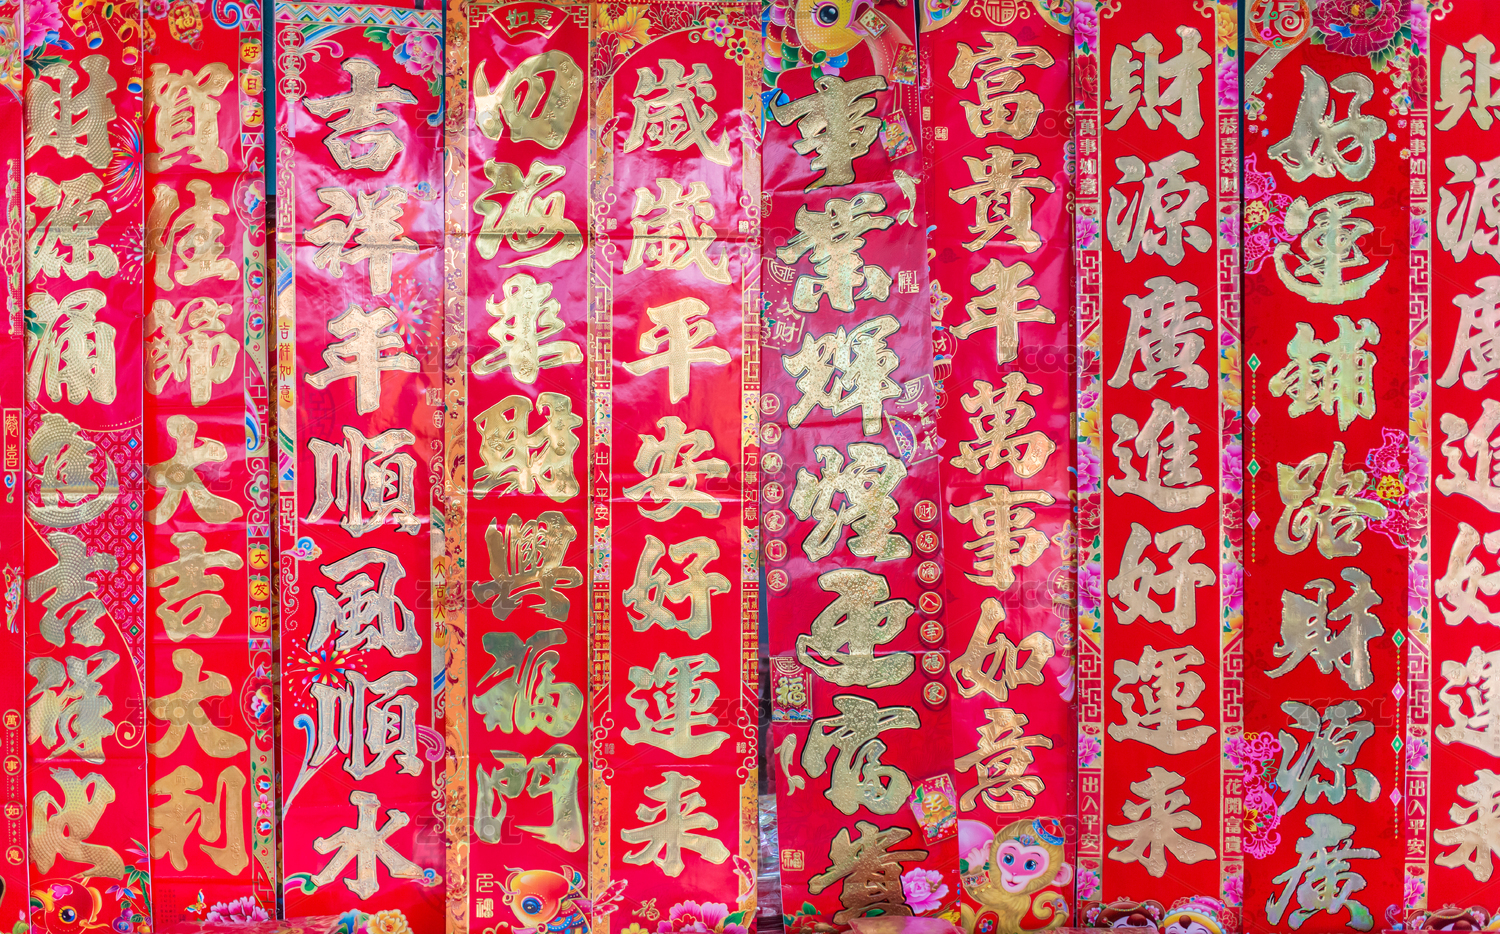 財源涌進吉祥
賀佳節大吉大利
好日子
大发财
吉祥年順風順水
吉祥如意
如意
四海来財興福門
歲歲平安好運来
出入平安
万事如意
事業輝煌富貴
福
富貴年萬事如意
福
萬事如意
出入平安
財源廣進好運来
恭喜發財
花開富貴
好運鋪路財源廣
萬事如意
出入平安
財源廣進好運来